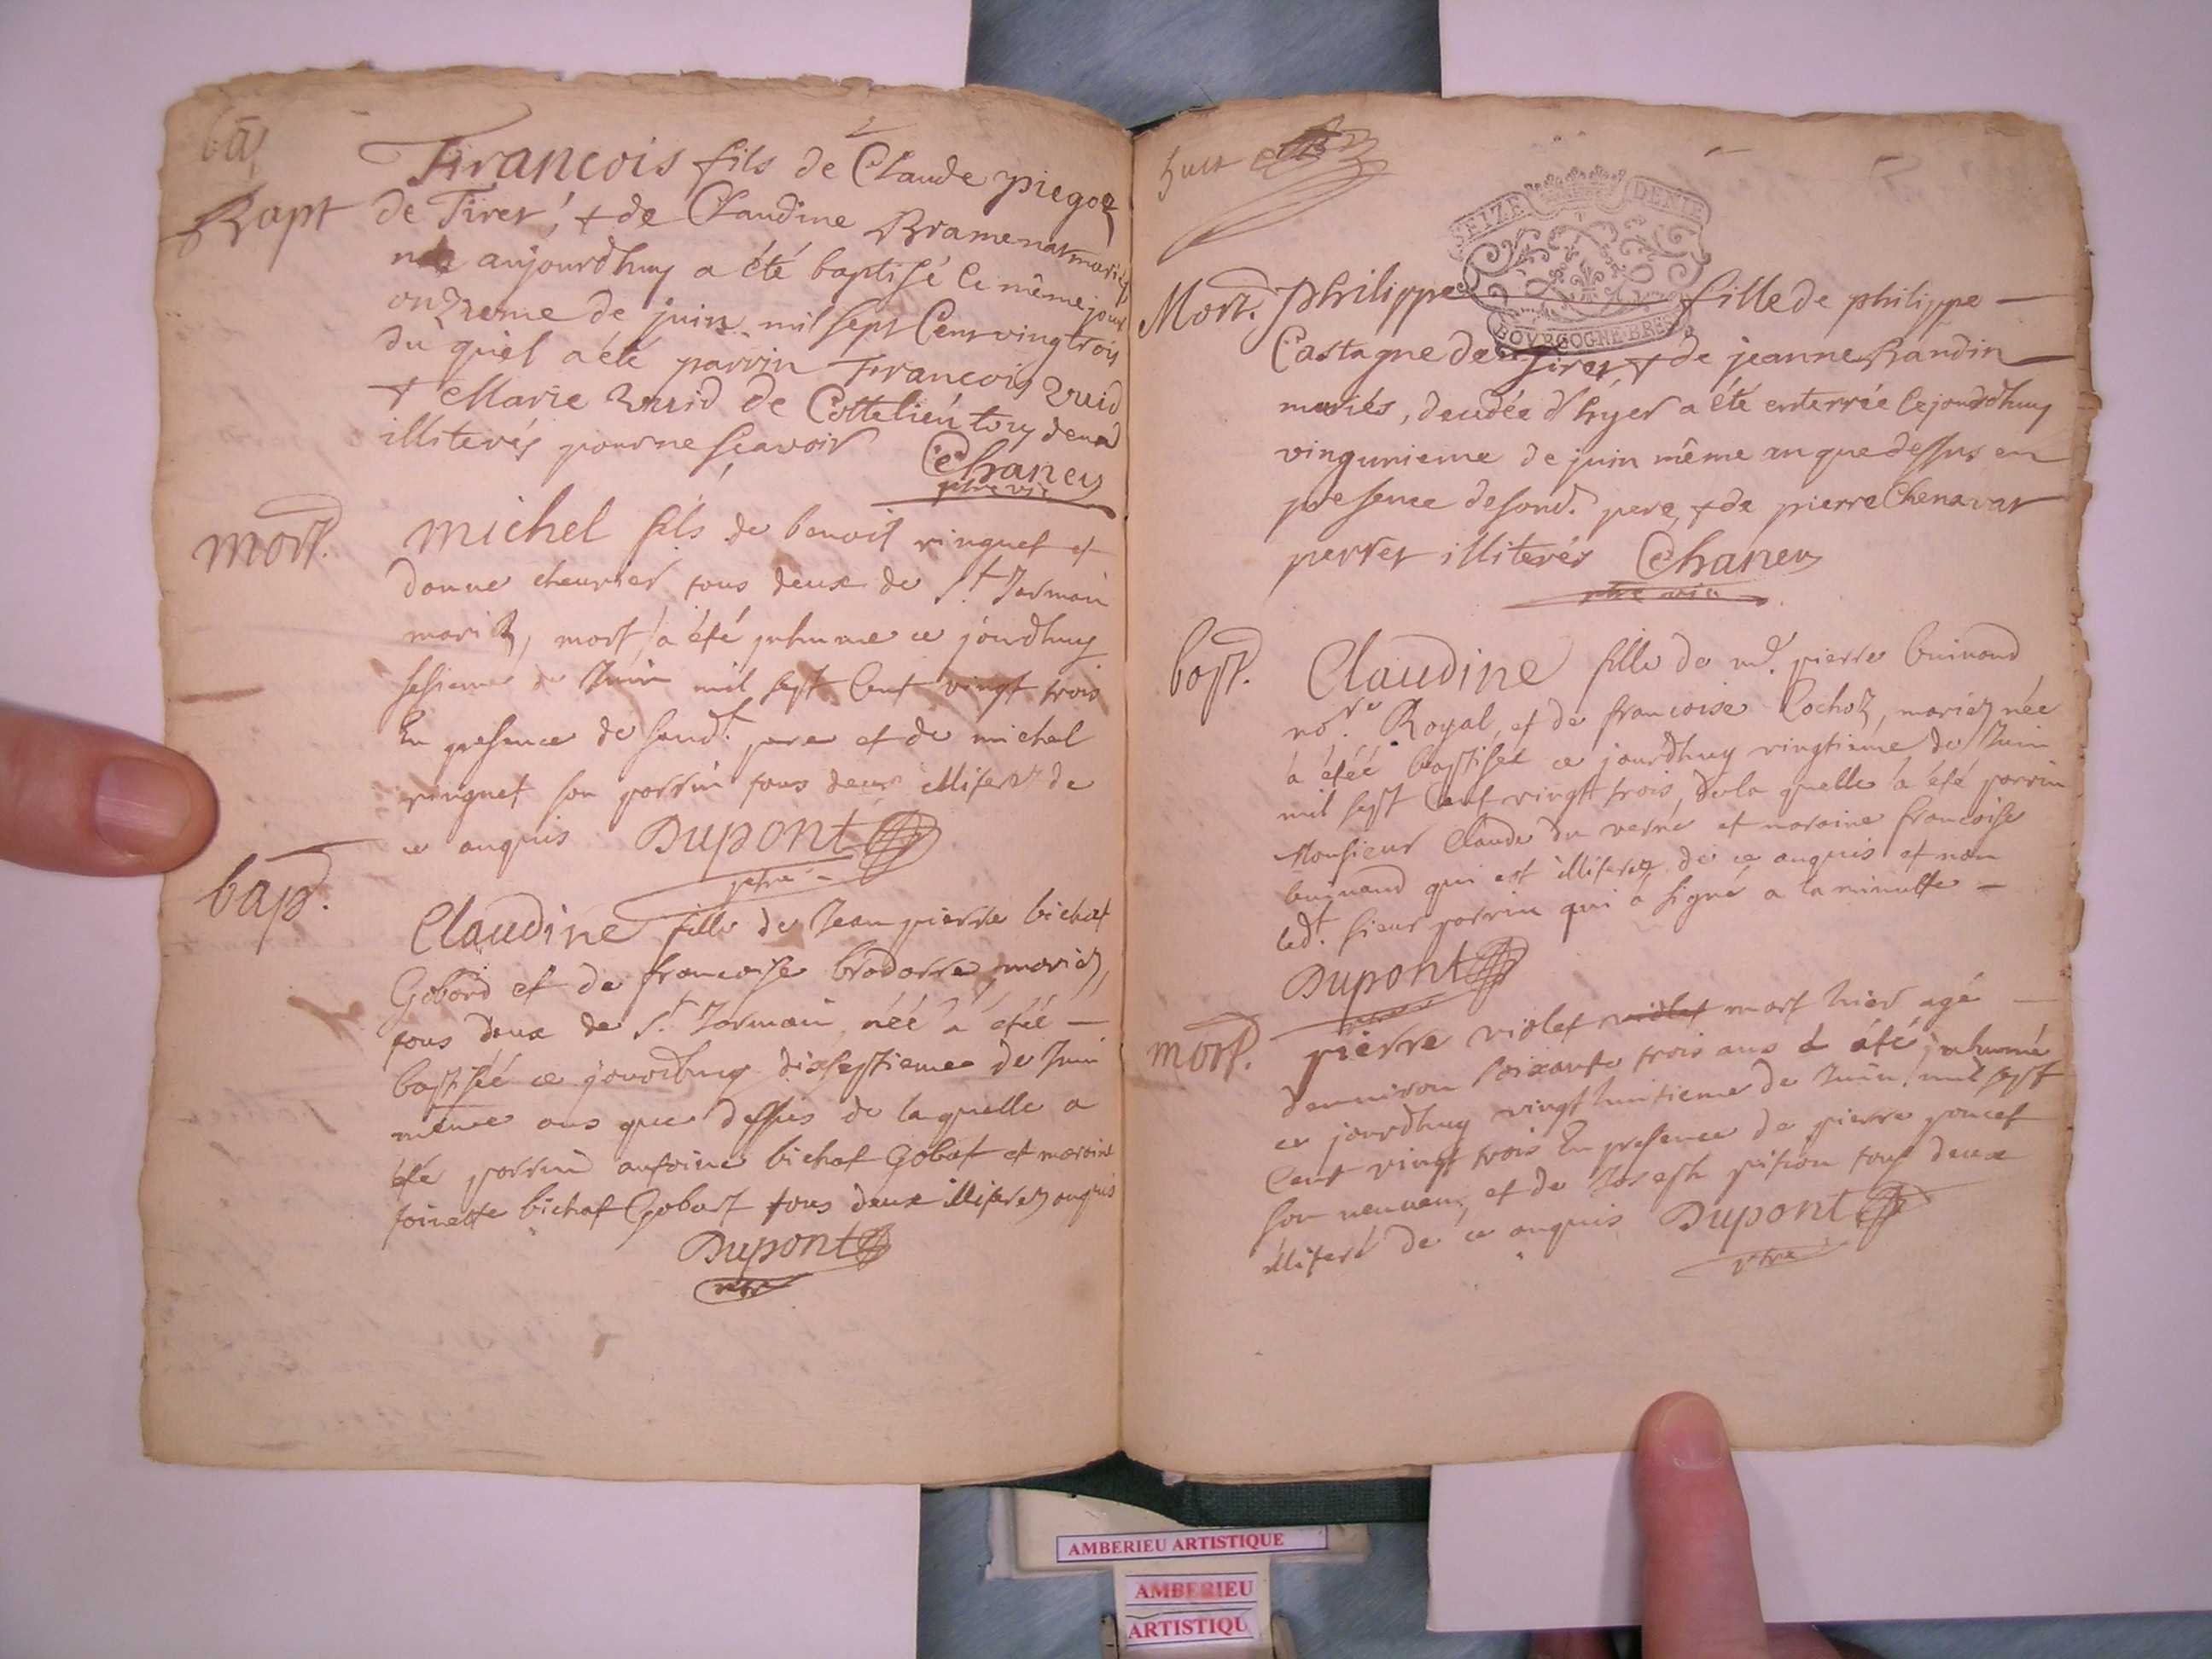 Bapt
Francois fils de Claude piegoz
de Tiret, & de Claudine Bramenat mariés
né aujourdhuy a été baptisé le même jour
onzieme de juin mil sept Cent vingt trois
du quel a été parrin Francois
& Marie de Cottelieu tous deux
illiterés pour ne sçavoir Chaney
ptre vic
mort.
Michel fils de benoit vinguet et
donne cheuvrier tous deux de St. Jermain
mariez, mort a été inhume ce jourdhuy
sesieme de Juin mil sept Cent vingt trois
En presence de sond.t pere et de michel
vinguet son parrin tous deux illiterez de
ce anquis Dupont
ptre
bap.
Claudine fille de Jean pierre bichat
Gobard et de francoise mariez,
tous deux de St. Jermain née a étéé
baptiséé ce jourdhuy dixseptieme de Juin
même ans que dessus de laquelle a
été parrin antoine bichat Gobat et maraine
toinette bichat Gobart tous deux illiterez anquis
Dupont
ptre
huit
SEIZE DENIE
BOURGOGNE BRES
Mort. philippe fille de philippe
Castagne de Tiret & de jeanne Bandin
mariés, decedée d'hyer a été enterrée cejourdhuy
vingunieme de juin même an que dessus en
presence de sond. pere, & de pierre Chenavar
perret illiterés Chaney
ptre vic
bapt. Claudine fille de md. pierre buinand
nore. Royal, et de francoise Cochoz, mariez née
a étéé baptiséé ce jourdhuy vingtieme de Juin
mil sept Cent vingtt trois, de la quelle a été parrin
Monsieur Claude du verne et maraine francoise
buinand qui est illiterez de ce anquis et non
led.t sieur parrin qui a signé a la minutte
Dupont
ptre
mort. pierre violet violet mort hier agé
denviron soixante trois ans a été inhumé
ce jourdhuy vingt huitieme de Juin mil sept
Cent vingt trois En presence de pierre poncet
son neuveu, et de Joseph pition tous deux
illiteré de ce anquis Dupont
ptre
AMBERIEU ARTISTIQUE
AMBERIEU
ARTISTIQU